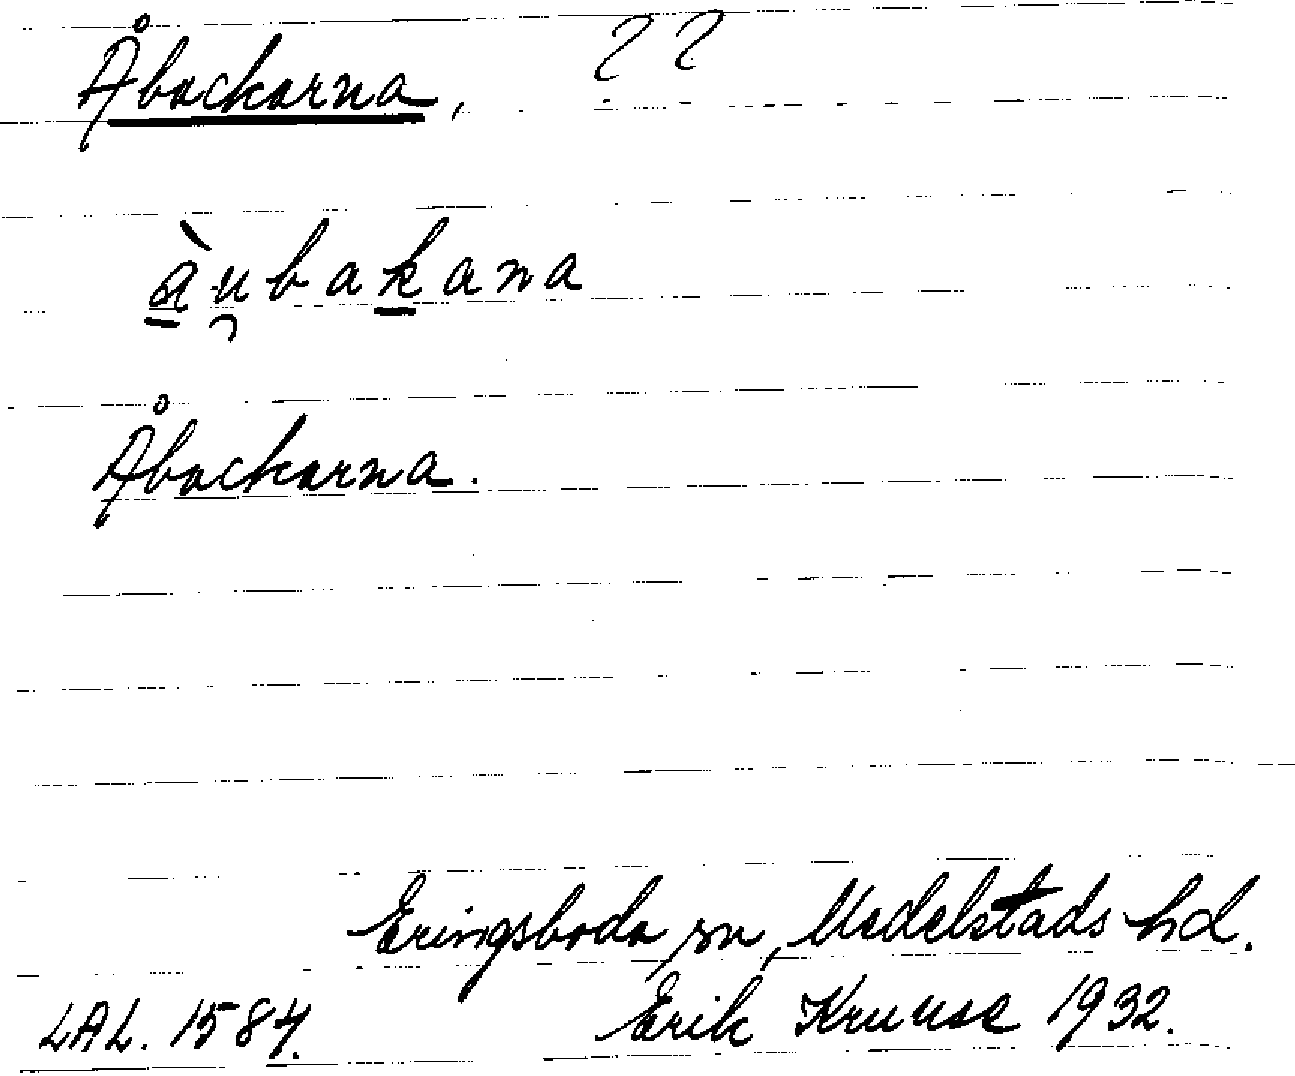 Åbackarna, ??
àu̯bakana
Åbackarna.
Eringsboda sn, Medelstads hd.
LAL. 1584. Erik Kruuse 1932.